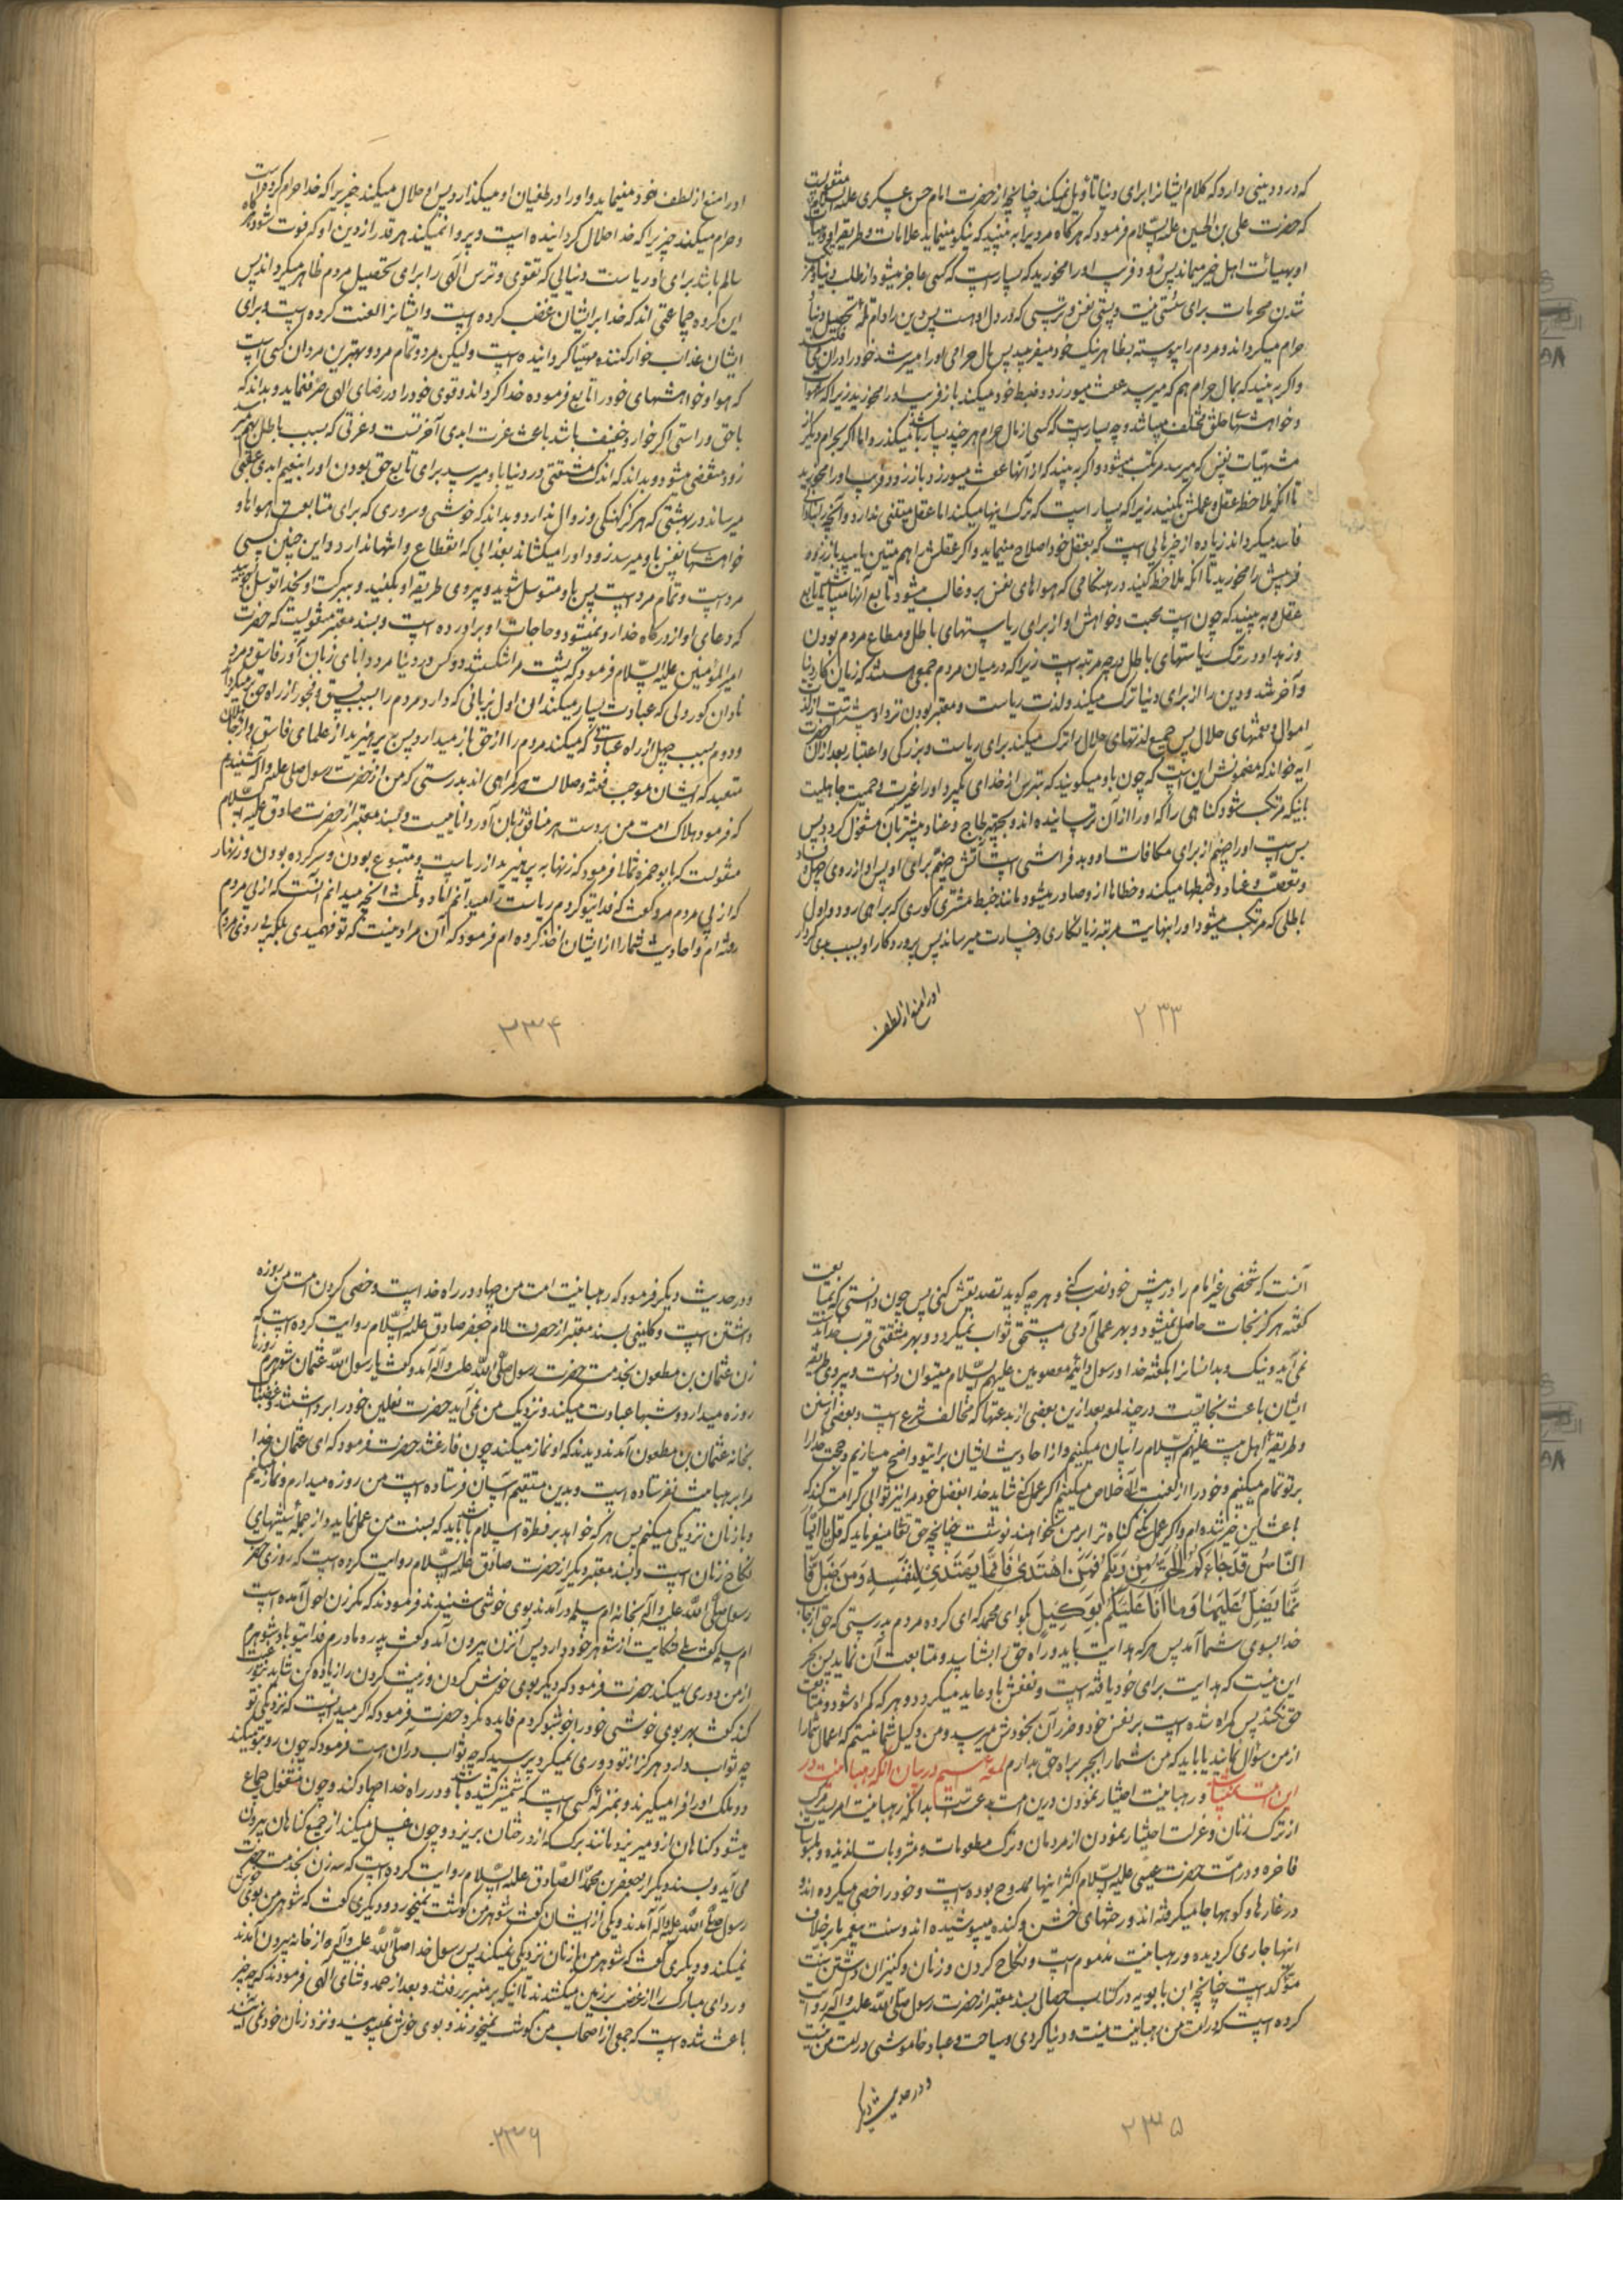 که درد دینی دارد که کلام ایشان را برای دنیا تأویل نمیکند چنانچه از حضرت امام حسن عسکری علیه السلام منقولست
که حضرت علی بن الحسین علیه السلام فرمود که هرگاه مردیرا به بینید که نیکو مینماید علامات و طریقه او و
او بهیأت اهل خیر میماند پس زود فریب او را مخورید که بسیارست که کسی عاجز میشود از طلب دنیا و مرتکب
شدن محرمات برای سستی نیت و پستی نفس و ترسی که در دل او هست پس دین را دام تحصیل دنیا
حرام میگرداند و مردم را پیوسته بظاهر نیک خود میفریبد پس مال حرامی او را میسر شد خود را در آن می
و اگر به بینید که بمال حرام هم که میرسد عفت میورزد و ضبط خود میکند باز فریب او را مخورید زیرا که شهوات
و خواهشهای خلق مختلف میباشد و چه بسیارست که کسی از مال حرام هر چند بسیار باشد میگذرد اما اگر بحرام دیگر از
مشتهیات نفس که میرسد مرتکب میشود و اگر به بینید که از آنها عفت میورزد باز زود فریب او را مخورید
تا آنکه ملاحظه عقل و عملش بکنید زیرا که بسیار است که ترک اینها میکند اما عقل متینی ندارد و آنچه
فاسد میگرداند زیاده از چیزهایی است که بعقل خود اصلاح مینماید و اگر عقلش را هم متین یابید باز زود
فریبش را مخورید تا آنکه ملاحظه کنید در هنگامی که هواهای نفس برو غالب میشود تابع آنها میباشد یا تابع
عقل و به بینید که چونست محبت و خواهش او از برای ریاستهای باطل و مطاع مردم بودن
و زهد او در ترک ریاستهای باطل بچه مرتبه است زیرا که در میان مردم جمعی هستند که زیان کار دنیا
و آخرتند و دین را از برای دنیا ترک میکنند و لذت ریاست و معتبر بودن نزد او بیشتر است از لذت
اموال و نعمتهای حلال پس جمیع لذتهای حلال را ترک میکند برای ریاست و بزرگی و اعتبار بعد از آن حضرت
آیه خواند که مضمونش این است که چون باو میگویند که بترس از خدای بگیرد او را غیرت و حمیت جاهلیت
بآنیکه مرتکب شود گناهی را که او را از آن ترسانیده اند و بجهت لجاج و عناد بیشتر بآن مشغول گردد پس
بس است او را جهنم از برای مکافات و بد فراشی است آتش جهنم برای او پس او از روی جهل
و تعصب و عناد و خبطها میکند و خطاها از و صادر میشود مانند خبط مشتری کوری که براهی رود و اول
باطلی که مرتکب میشود او را بنهایت مرتبه زیانکاری و خسارت میرساند پس پروردگار او بسبب
او را منع از لطف
۲۳۳
او را منع از لطف خود مینماید و او را در طغیان او میگذارد پس او حلال میکند چیزیرا که خدا حرام کرده است
و حرام میکند چیزیرا که خدا حلال گردانیده است و پروا نمیکند هر قدر از دین او که فوت شود هرگاه
سالم باشد برای او ریاست دنیایی که تقوی و ترس الهی را برای تحصیل مردم ظاهر میگرداند پس
این گروه جماعتی اند که خدا بر ایشان غضب کرده است و ایشان را لعنت کرده است و برای
ایشان عذاب خوار کننده مهیا گردانیده است و لیکن مرد و تمام مرد و بهترین مردان کسی است
که هوا و خواهشهای خود را تابع فرموده خدا گرداند و قوی خود را در رضای الهی صرف نماید و بداند که
با حق و راستی اگر خوار و خفیف باشد باعث عزت ابدی آخرتست و عزتی که بسبب باطل بهم رسد
زود منقضی میشود و بداند که اندک مشقتی در دنیا باو میرسد برای تابع حق بودن او را بنعیم ابدی عقبی
میرساند در بهشتی که هرگز کهنگی و زوال ندارد و بداند که خوشی و سروری که برای متابعت هواها و
خواهشهای نفس باو میرسد زود او را میکشاند بعذابی که انقطاع و انتها ندارد و این چنین کسی
مرد است و تمام مرد است پس باو متوسل شوید و پیروی طریقه او بکنید و ببرکت او بخدا توسل جویید
که دعای او از درگاه خدا رد نمیشود و حاجات او برآورده است و بسند معتبر منقولست که حضرت
امیرالمؤمنین علیه السلام فرمود که پشت مرا شکستند دو کس در دنیا مرد دانای زبان آور فاسق و مرد
نادان کور دلی که عبادت بسیار میکند آن اول بزبانی که دارد مردم را بسبب فسق و فجور از راه حق میگرداند
و دوم بسبب جهل از راه عبادتی که میکند مردم را از حق باز میدارد پس بپرهیزید از علمای فاسق و از جاهلان
متعبد که ایشان موجب فتنه و ضلالت هر گمراهی اند بدرستی که من از حضرت رسول صلی الله علیه و آله شنیدم
که فرمود هلاک امت من بر دست هر منافق زبان آور دانا نیست و بسند معتبر از حضرت صادق علیه السلام
منقولست که با بوحمزه ثمالی فرمود که زنهار به پرهیزید از ریاست و متبوع بودن و سرکرده بودن و زنهار
که از پی مردم مرو گفت که فدای تو گردم ریاست را میدانم اما دو ثلث آنچه میدانم آنست که از پی مردم
رفته ام و احادیث شما را از ایشان اخذ کرده ام فرمود که آن مراد نیست که تو فهمیدی بلکه پی روی مردم
۲۳۴
آنست که شخصی غیر امام را در پیش خود نصب کنی و هر چه گوید تصدیقش کنی پس چون دانستی که بمتابعت
گفته هرگز نجات حاصل نمیشود و بهر عملی آدمی مستحق ثواب نمیگردد و بهر مشقتی قرب خدا بدست
نمی آید و نیک و بد انسان را بگفته خدا و رسول و ائمه معصومین علیهم السلام میتوان دانست و پیروی طریقه
ایشان باعث نجاتست در چند لمعه بعد از این بعضی از بدعتها که مخالف شرع است و بعضی از سنن
و طریقه اهل بیت علیهم السلام را بیان میکنیم و از احادیث ایشان بر تو واضح میسازیم و حجت خدا را
بر تو تمام میکنیم و خود را از لعنت الهی خلاص میکنیم اگر عمل کنی شاید خدا بفضل خود مرا نیز ثوابی کرامت کند که
باعث این خیر شده ام و اگر عمل نکنی گناه ترا بر من نخواهند نوشت چنانچه حق تعالی میفرماید که قل یا ایها
النَّاسُ قَدْ جَاءَكُمُ الْحَقُّ مِنْ رَبِّكُمْ فَمَنِ اهْتَدَىٰ فَإِنَّمَا يَهْتَدِي لِنَفْسِهِ وَمَنْ ضَلَّ فَإِ
نَّمَا يَضِلُّ عَلَيْهَا وَمَا أَنَا عَلَيْكُمْ بِوَكِيلٍ بگو ای محمد که ای گروه مردم بدرستی که حق از جانب
خدا بسوی شما آمد پس هر که هدایت یابد و راه حق را بشناسد و متابعت آن نماید پس بجز
این نیست که هدایت برای خود یافته است و نفعش باو عاید میگردد و هر که گمراه شود و متابعت
حق نکند پس گمراه شده است بر نفس خود و ضرر آن بخودش میرسد و من وکیل شما نیستم که اعمال شما را
از من سؤال نمایند یا باید که من شما را بجبر براه حق بدارم لمعه سیم در بیان آنکه رهبانیت در
این امت نمیباشد و رهبانیت اختیار نمودن درین امت بدعت است بدانکه رهبانیت امریست مرکب
از ترک زنان و عزلت اختیار نمودن از مردمان و ترک مطعومات و مشروبات لذیذه و ملبوسات
فاخره و در امت حضرت عیسی علیه السلام اکثر اینها ممدوح بوده است و خود را خصی میکرده اند و
در غارها و کوهها جا میگرفته اند و رختهای خشن و کنده میپوشیده اند و سنت پیغمبر ما بر خلاف
اینها جاری گردیده و رهبانیت مذموم است و نکاح کردن و زنان و کنیزان داشتن سنت
مؤکد است چنانچه ابن بابویه در کتاب خصال بسند معتبر از حضرت رسول صلی الله علیه و آله روایت
کرده است که در امت من رهبانیت نیست و دنیا گردی و سیاحت و عباد خاموشی در امت من نیست
و در حدیث دیگر
۲۳۵
و در حدیث دیگر فرمود که رهبانیت امت من جهاد در راه خداست و خصی کردن امت من روزه
داشتن است و کلینی بسند معتبر از حضرت امام جعفر صادق علیه السلام روایت کرده است که
زن عثمان بن مظعون بخدمت حضرت رسول صلی الله علیه و آله آمد و گفت یا رسول الله عثمان شوهرم روزها
روزه میدارد و شبها عبادت میکند و نزدیک من نمی آید حضرت نعلین خود را برداشتند و غضبناک
بخانه عثمان بن مظعون آمدند دیدند که او نماز میکند چون فارغ شد حضرت فرمود که ای عثمان خدا
مرا برهبانیت نفرستاده است و بدین مستقیم آسان فرستاده است من روزه میدارم و نماز میکنم
و با زنان نزدیکی میکنم پس هر که خواهد بر فطرت اسلام باشد باید که بسنت من عمل نماید و از جمله سنتهای
نکاح زنان است و بسند معتبر دیگر از حضرت صادق علیه السلام روایت کرده است که روزی حضرت
رسول صلی الله علیه و آله بخانه ام سلمه درآمدند بوی خوشی شنیدند فرمودند که مگر زن احول آمده است
ام سلمه گفت بلی شکایت از شوهر خود دارد پس آن زن بیرون آمد و گفت پدر و مادرم فدای تو باد شوهرم
از من دوری میکند حضرت فرمود که دیگر بوی خوش کردن و زینت کردن را زیاده کن شاید بتو رغبت
کند گفت بهر بوی خوشی خود را خوشبو کردم فایده نکرد حضرت فرمود که اگر میدانست که نزدیکی تو
چه ثواب دارد هرگز از تو دوری نمیکرد پرسید که چه ثواب در آن است فرمود که چون رو بتو میکند
دو ملک او را فرا میگیرند و بمنزله کسی است که شمشیر کشیده باشد و در راه خدا جهاد کند و چون مشغول جماع
میشود گناهان ازو میریزد مانند برگ که از درختان بریزد و چون غسل میکند از جمیع گناهان بیرون
می آید و بسند دیگر از جعفر بن محمد الصادق علیه السلام روایت کرده است که سه زن بخدمت حضرت
رسول صلی الله علیه و آله آمدند و یکی از ایشان گفت شوهر من گوشت نمیخورد و دیگری گفت که شوهر من بوی خوش
نمیکند و دیگری گفت که شوهر من با زنان نزدیکی نمیکند پس رسول خدا صلی الله علیه و آله از خانه بیرون آمدند
و ردای مبارک را از غضب بر زمین میکشیدند تا اینکه بر منبر رفتند و بعد از حمد و ثنای الهی فرمودند که چه چیز
باعث شده است که جمعی از اصحاب من گوشت نمیخورند و بوی خوش نمیبویند و نزد زنان خود نمی آیند
۲۳۶